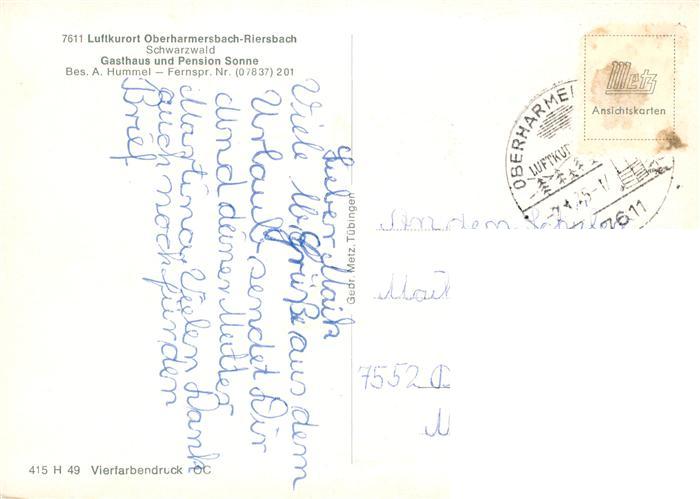 7611 Luftkurort Oberharmersbach-Riersbach
Schwarzwald
Gasthaus und Pension Sonne
Bes. A. Hummel — Fernspr. Nr. (07837) 201
Lieber Maik
Viele Grüße aus dem
Urlaub sendet Dir
und deiner Mutter
Martina. Vielen Dank
auch noch für den
Brief
Gebr. Metz, Tübingen
Metz
Ansichtskarten
OBERHARME
LUFTKU
7611
An den
Maik
7552
M
415 H 49 Vierfarbendruck OC